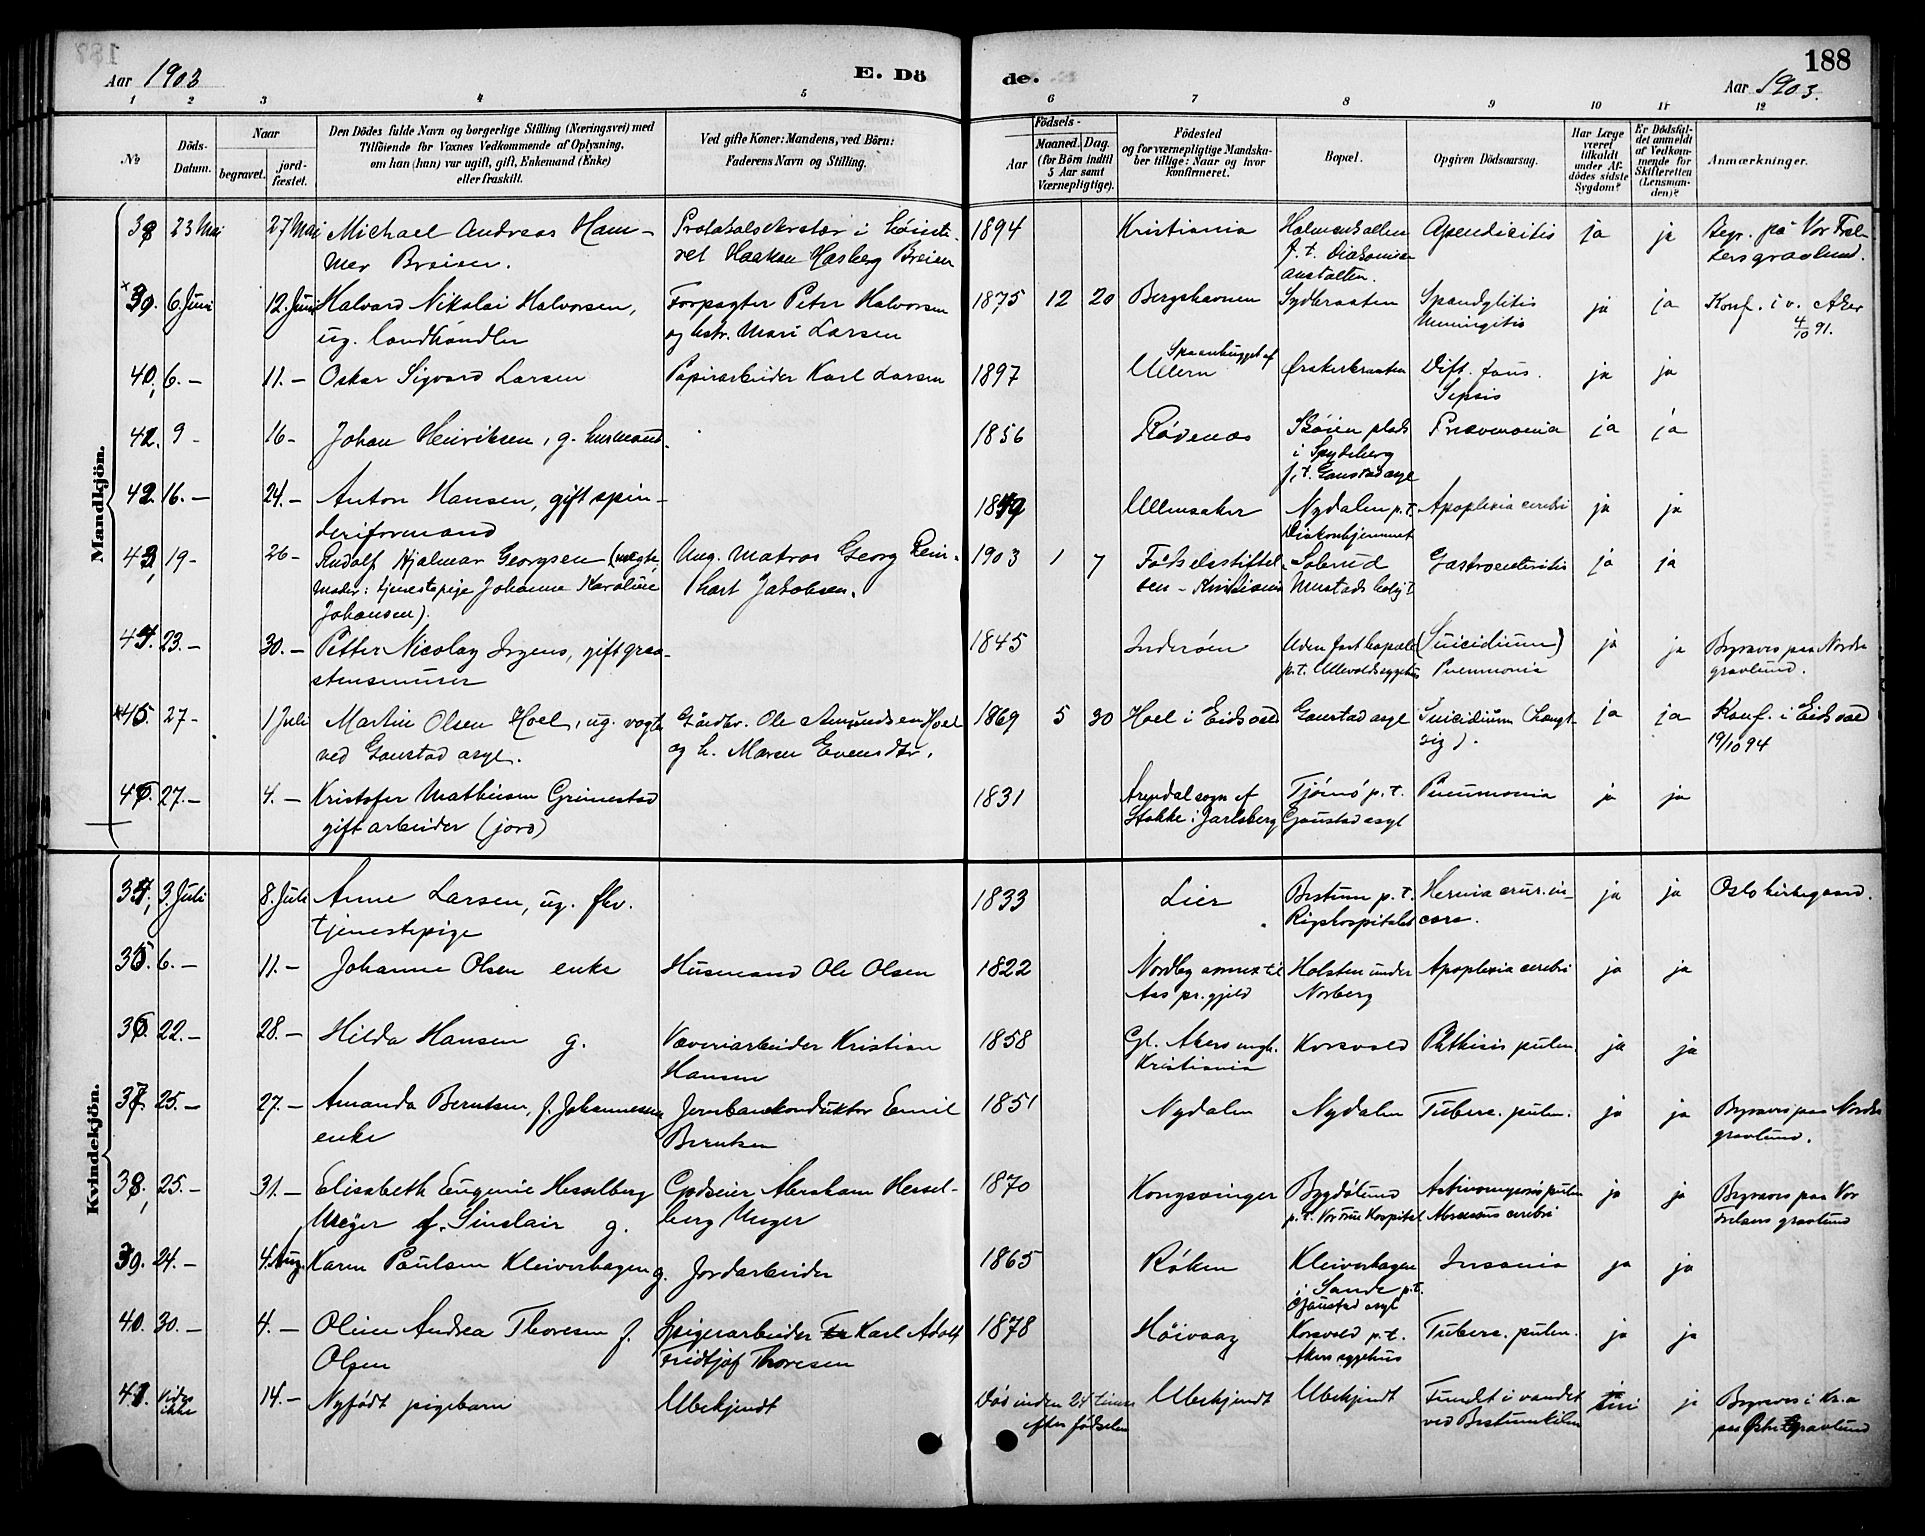 Aar 1903
E. Dö
de.
188
Aar 1903.
1 2 3 4 5 6 7 8 9 10 11 12
No
Döds-
Datum.
Naar
begravet.
jord-
fæstet.
Den Dödes fulde Navn og borgerlige Stilling (Næringsvei) med
Tilföiende for Voxnes Vedkommende af Oplysning,
om han (hun) var ugift, gift, Enkemand (Enke)
eller fraskilt.
Ved gifte Koner: Mandens, ved Börn:
Faderens Navn og Stilling.
Födsels-
Aar
Maaned. Dag.
(for Börn indtil
5 Aar samt
Værnepligtige).
Födested
og for værnepligtige Mandska-
ber tillige: Naar og hvor
konfirmeret.
Bopæl.
Opgiven Dödsaarsag.
Har Læge
været
tilkaldt
under Af-
dödes sidste
Sygdom?
Er Dödsfal-
det anmeldt
af Vedkom-
mende for
Skifteretten
(Lensman-
den)?
Anmærkninger.
Mandkjön.
38 23 Mai 27 Mai Michael Andreas Ham-
mer Breien.
Protokolsekretær i Höieste-
ret Haakon Hasberg Breien
1894 Kristiania Holmenkollen
p. t. Diakonisse
anstalten.
Apendicitis ja ja Begr. på Vor Frel-
sers gravlund.
39. 6. Juni 12. Juni Halvard Nikolai Halvorsen,
ug. landhandler
Forpagter Peter Halvorsen
og hstr. Mari Larsen
1875 12 20 Bergshavnen Sydbraaten Spondylitis
Meningitis
ja ja Konf. i v. Aker
4/10 91.
40, 6. — 11. — Oskar Sigvard Larsen Papirarbeider Karl Larsen 1897 Ullern Ørakerbraaten Dift. faus.
Sepsis
ja ja
42. 9 - 16- Johan Henriksen, g. husmand. 1856 Rødenæs Skøien plads
i Spydeberg
p. t. Gaustad asyl
Pneumonia ja ja
42. 16. — 24. — Anton Hansen, gift spin-
deriformand
1849 Ullensaker Nydalen p. t.
Diakonhjemmet
Apoplexia cerebri ja ja
43, 19- 26- Rudolf Hjalmar Georgsen (uægte,
moder: tjenestepige Johanne Karoline
Johansen)
Ung. matros Georg Rein-
hart Jakobsen.
1903 1 7 Fødselsstiftel-
sen - Kristiania
Solerud
Mustads bolig
Gastroenteritis ja ja
44. 23. — 30. — Petter Nicolay Irgens, gift graa-
stensmurer
1845 Inderøen Uden fast bopæl
p. t. Ullevold sygehus
(Suicidium)
Pneumonia
ja ja Begraves paa Nordre
gravlund.
45. 27- 1 Juli Martin Olsen Hoel, ug. vogter
ved Gaustad asyl.
Gårdbr. Ole Amundsen Hoel
og h. Maren Evensdtr.
1869 5 30 Hoel i Eidsvold Gaustad asyl Suicidium (hængt
sig).
ja ja Konf. i Eidsvold
19/10 94
46. 27. — 4. — Kristofer Mathiesen Grimestad
gift arbeider (jord)
1831 Arendal sogn af
Stokke i Jarlsberg
Tjømø p. t.
Gaustad asyl
Pneumonia ja ja
Kvindekjön.
34, 3. Juli 8. Juli Anne Larsen, ug. fhv.
tjenestepige
1833 Lier Bestum p. t.
Rigshospitalet
Hernia crur. in-
carc.
ja ja Oslo kirkegaard.
35. 6. — 11. — Johanne Olsen enke Husmand Ole Olsen 1822 Nordby annex til
Aas pr.gjeld
Holsten under
Norberg
Apoplexia cerebri ja ja
36. 22. — 28. — Hilda Hansen g. Væveriarbeider Kristian
Hansen
1858 Gl. Akers mgh.
Kristiania
Korsvold Phthisis pulm. ja ja
37. 25. — 27. — Amanda Berntsen, f. Johannesen
enke
Jernbanekonduktør Emil
Berntsen
1851 Nydalen Nydalen Tuberc. pulm. ja ja Begraves paa Nordre
gravlund.
38, 25. — 31. — Elisabeth Eugenie Hesselberg
Meyer f. Sinclair g.
Godseier Abraham Hessel-
berg Meyer
1870 Kongsvinger Bygdølund
p. t. Vor Frue Hospital
Actinomycosis pulm
Abscessus cerebri
ja ja Begraves paa Vor
Frelsers gravlund
39. 24. — 4. Aug. Karen Paulsen Kleiverhagen g. Jordarbeider 1865 Røken Kleiverhagen
i Sande p. t.
Gaustad asyl
Insania ja ja
40. 30. — 4. — Oline Andrea Thoresen f.
Olsen
Spigerarbeider Karl Adolf
Fridtjof Thoresen
1878 Høivaag Korsvold p. t.
Akers sygehus
Tuberc. pulm. ja ja
41. Vides
ikke
14. — Nyfødt pigebarn Ubekjendt Død inden 24 timer
efter fødselen
Ubekjendt Ubekjendt Fundet i vandet
ved Bestumkilen
ja Begraves i Kr.a
paa Østre gravlund